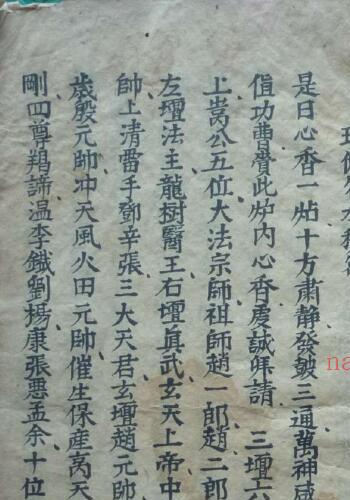 是日心香一炷十方肅靜發皷三通萬神咸
值功曹賫此炉内心香虔誠拜請 三壇上六
上嵩公五位大法宗師祖師趙一郎趙二郎
左壇法主龍樹醫王右壇真武玄天上帝中
帥上清雷手鄧辛張三大天君玄壇趙元帥
歲殷元帥冲天風火田元帥催生保産高天
剛四尊羯諦温李鐵劉揚康張悪孟余十位
na